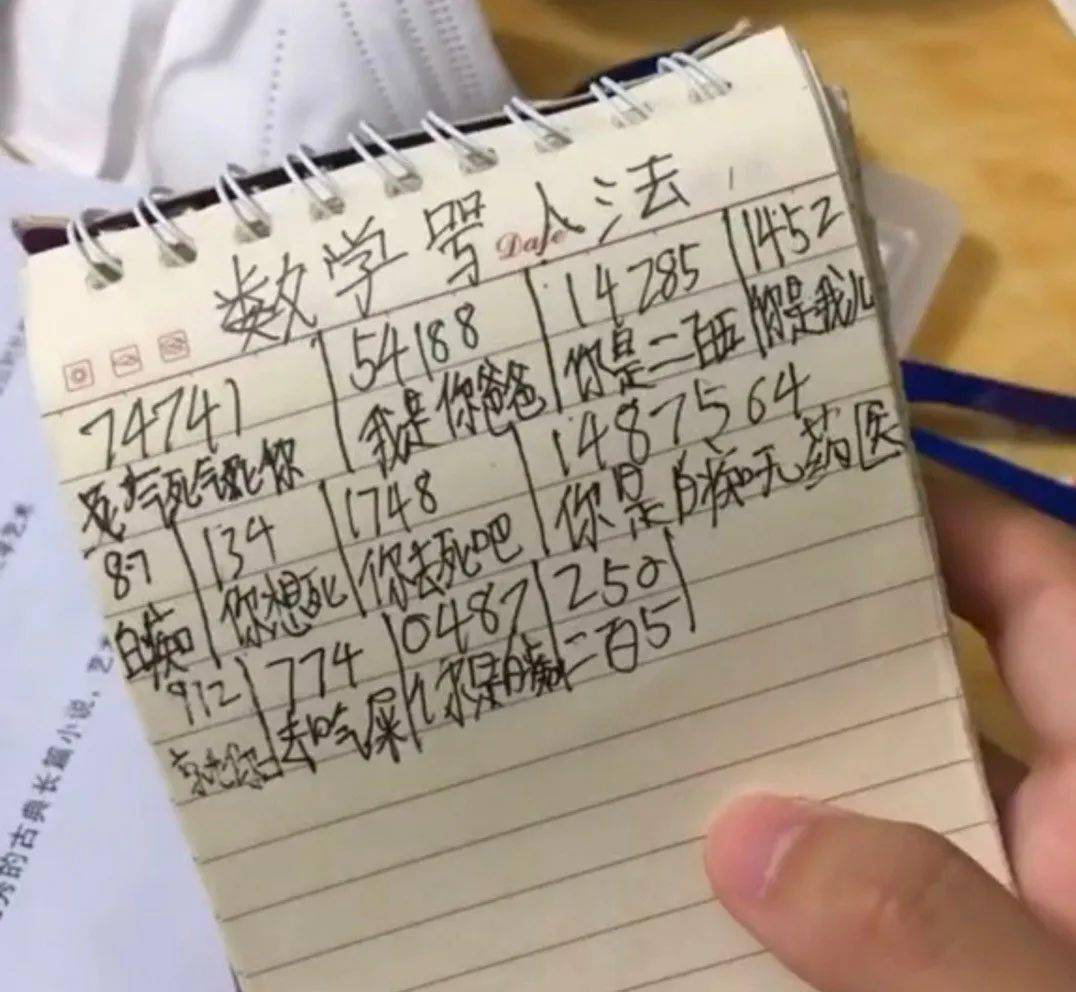 数学骂人法
Date
74741 54188 14285 1452
气死气死你 我是你爸爸 你是二百五 你是我儿
87 134 1748 1487564
白痴 你想死 你去死吧 你是白痴无药医
912 774 0487 250
去吃屎 你是白痴 二百5
秀的古典长篇小说，艺术